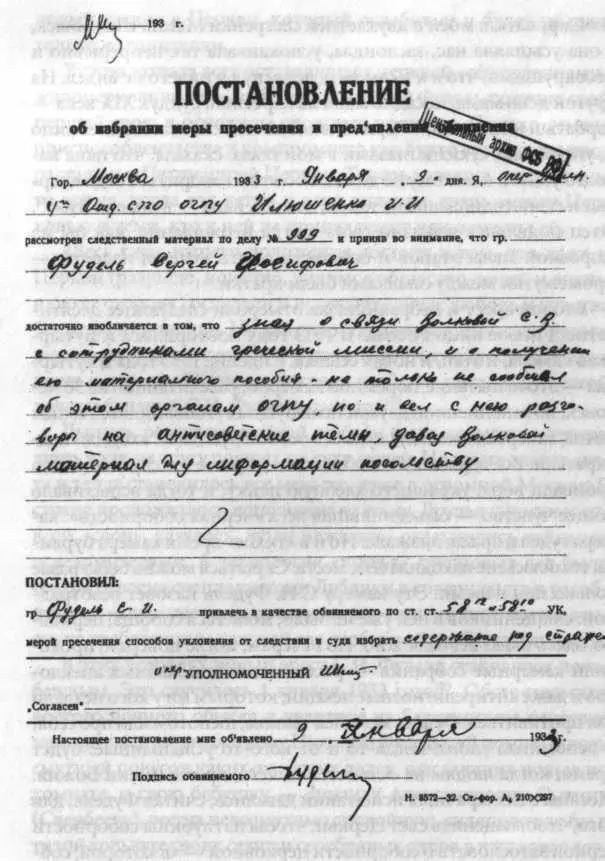 193 г.
ПОСТАНОВЛЕНИЕ
об избрании меры пресечения и предъявлении обвинения
Центральный архив ФСБ РФ
Гор. Москва 1933 г. Января „9" дня. Я, опер
Отд. СПО ОГПУ Илюшенко И.И
рассмотрев следственный материал по делу № 999 и приняв во внимание, что гр.
Фудель Сергей Иосифович
достаточно изобличается в том, что зная о связи Волковой С.В
с сотрудниками греческой миссии и о получении
ею материального пособия - не только не сообщал
об этом органам ОГПУ но и вел с нею разго
воры на антисоветские темы, давая Волковой
материал для информации посольству
ПОСТАНОВИЛ:
гр Фудель С. И. привлечь в качестве обвиняемого по ст. ст. 58 58¹⁰ УК,
мерой пресечения способов уклонения от следствия и суда избрать содержание под стражей
опер УПОЛНОМОЧЕННЫЙ
„Согласен"
Настоящее постановление мне об'явлено 9 Января 1933 г.
Подпись обвиняемого Фудель
Н. 8572—32. Ст. фор. А, 210×297